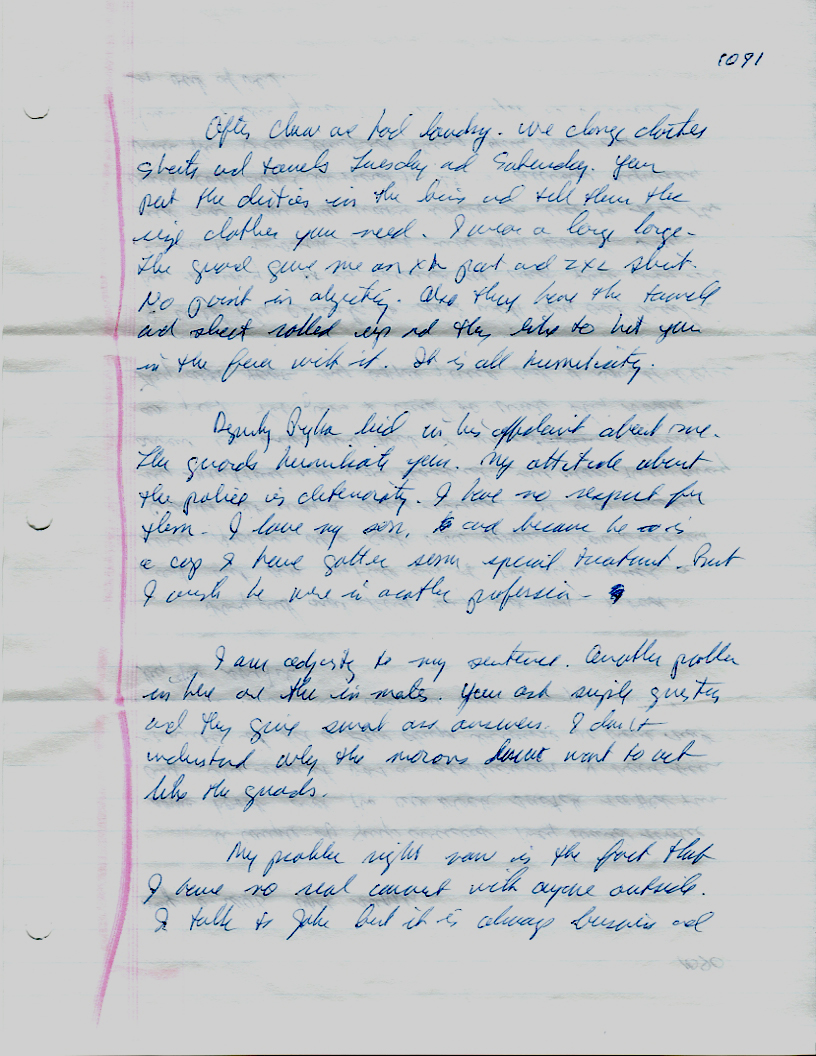 1091
After chow we had laundry. We change clothes
sheets and towels Tuesday and Saturday. You
put the dirties in the bin and tell them the
size clothes you need. I wear a large large.
The guard gave me an XL pant and 2XL shirt.
No point in objecting. Also they have the towels
and sheet rolled up and they like to hit you
in the face with it. It is all humility.
Deputy lied in his affidavit about me.
The guards humiliate you. My attitude about
the police is deteriorating. I have no respect for
them. I love my son, and because he is
a cop I have gotten some special treatment. But
I wish he were in another profession.
I am adjusting to my sentence. Another problem
in here are the inmates. You ask simple questions
and they give smart ass answers. I don't
understand why the morons want to act
like the guards.
My problem right now is the fact that
I have no real contact with anyone outside.
I talk to Jake but it is always business and